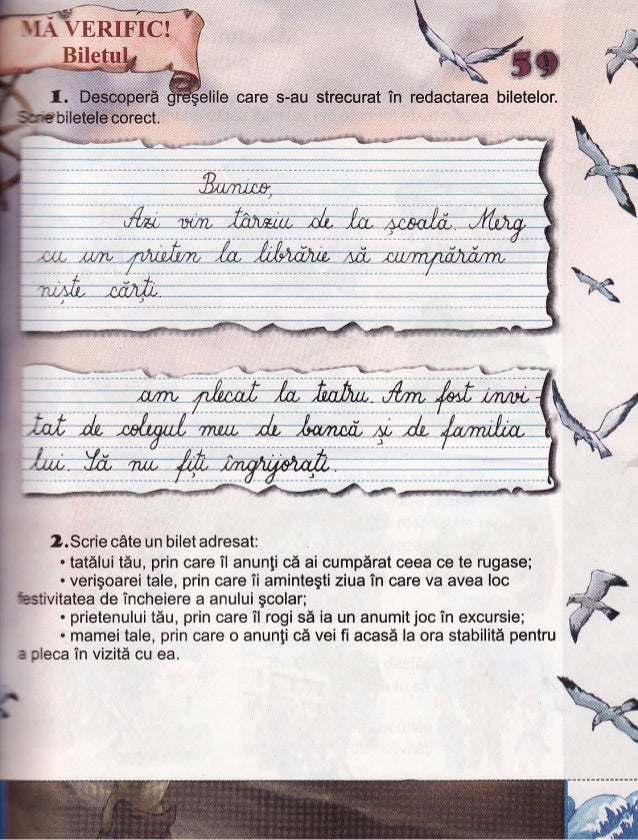 MĂ VERIFIC!
Biletul
59
1. Descoperă greşelile care s-au strecurat în redactarea biletelor.
Scrie biletele corect.
Bunico,
Azi vin târziu de la şcoală. Merg
cu un prieten la librărie să cumpărăm
nişte cărţi.
am plecat la teatru. Am fost invi-
tat de colegul meu de bancă şi de familia
lui. Să nu fiţi îngrijoraţi.
2. Scrie câte un bilet adresat:
• tatălui tău, prin care îl anunţi că ai cumpărat ceea ce te rugase;
• verişoarei tale, prin care îi aminteşti ziua în care va avea loc
festivitatea de încheiere a anului şcolar;
• prietenului tău, prin care îl rogi să ia un anumit joc în excursie;
• mamei tale, prin care o anunţi că vei fi acasă la ora stabilită pentru
a pleca în vizită cu ea.